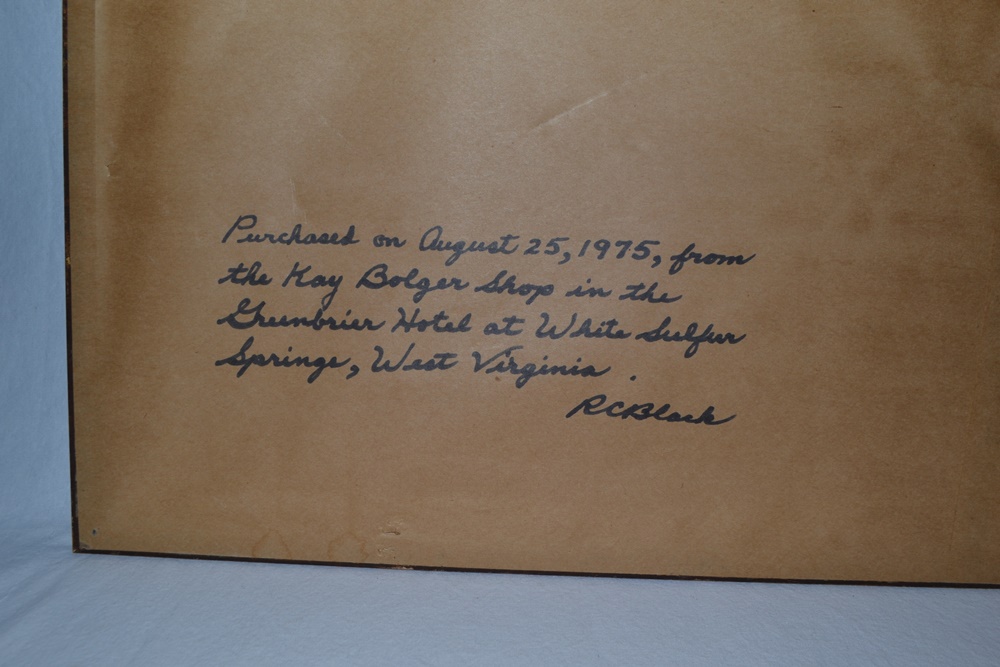 Purchased on August 25, 1975, from
the Kay Bolger Shop in the
Greenbrier Hotel at White Sulfur
Springs, West Virginia .
RCBlack